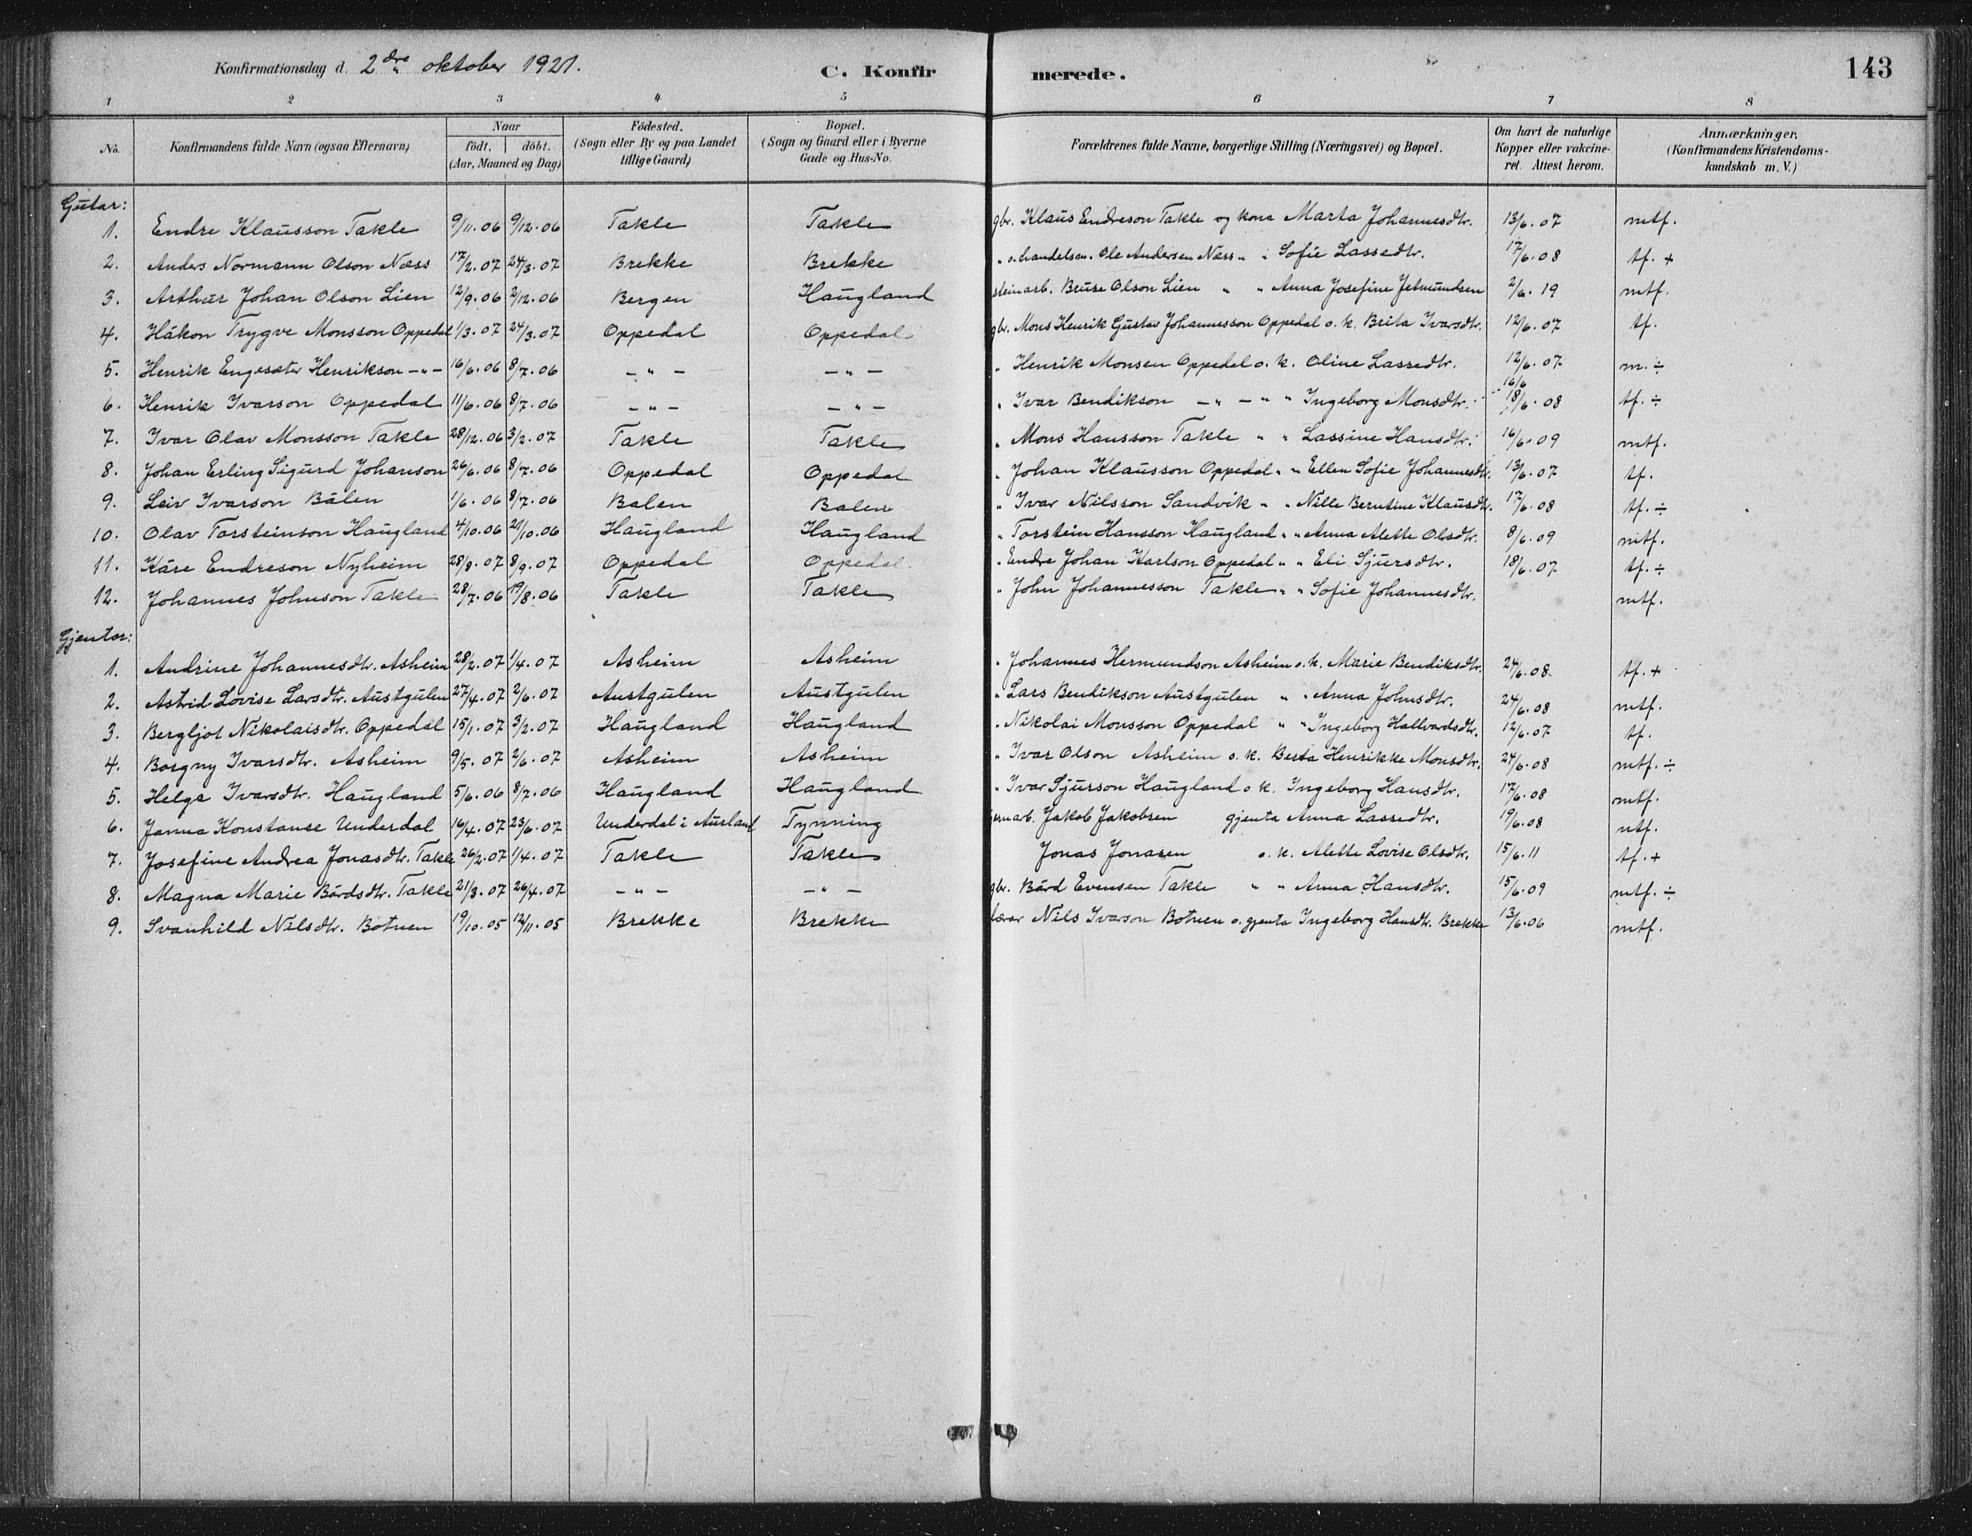 Konfirmationsdag d. 2dre oktober 1921. C. Konfirmerede. 143
1 2 3 4 5 6 7 8
No. Konfirmandens fulde Navn (ogsaa Efternavn) Naar födt. döbt. (Aar, Maaned og Dag) Födested. (Sogn eller By og paa Landet tillige Gaard) Bopæl. (Sogn og Gaard eller i Byerne Gade og Hus-No. Forældrenes fulde Navne, borgerlige Stilling (Næringsvei) og Bopæl. Om havt de naturlige Kopper eller vakcineret. Attest herom. Anmærkninger, (Konfirmandens Kristendomskundskab m. V.)
Gutar:
1. Endre Klausson Takle 9/11.06 9/12.06 Takle Takle gbr. Klaus Endreson Takle og kona Marta Johannesdtr. 13/6.07 mtf.
2. Anders Normann Olson Næss 17/2.07 24/3.07 Brekke Brekke " o. handelsm. Ole Andersen Næss " " Sofie Lassedtr. 17/6.08 tf. +
3. Arthur Johan Olson Lien 12/9.06 2/12.06 Bergen Haugland steinarb. Bruse Olson Lien " " Anna Josefine Jetmundsen 2/6.19 mtf.
4. Håkon Trygve Monsson Oppedal 1/3.07 24/3.07 Oppedal Oppedal gbr. Mons Henrik Gustav Johannesson Oppedal o. k. Brita Ivarsdtr. 12/6.07 tf.
5. Henrik Engesæter Henrikson -"- 16/6.06 8/7.06 -"- -"- " Henrik Monsen Oppedal o. k. Oline Lassedtr. 12/6.07 m. ÷
6. Henrik Ivarson Oppedal 11/6.06 8/7.06 -"- -"- " Ivar Bendikson -"- " " Ingeborg Monsdtr. 16/6 18/6.08 tf. ÷
7. Ivar Olav Monsson Takle 28/12.06 3/2.07 Takle Takle " Mons Hansson Takle " " Lassine Hansdtr. 16/6.09 mtf.
8. Johan Erling Sigurd Johanson 26/6.06 8/7.06 Oppedal Oppedal " Johan Klausson Oppedal " " Ellen Sofie Johannesdtr. 13/6.07 tf.
9. Leiv Ivarson Bålen 1/6.06 8/7.06 Balen Balen " Ivar Nilsson Sandvik " " Nille Berntine Klausdtr. 17/6.08 tf. ÷
10. Olav Torsteinson Haugland 4/10.06 21/10.06 Haugland Haugland " Torstein Hansson Haugland " " Anna Alette Olsdtr. 8/6.09 mtf.
11. Kåre Endreson Nyheim 28/8.07 8/9.07 Oppedal Oppedal " Endre Johan Karlson Oppedal " " Eli Sjursdtr. 18/6.07 tf. ÷
12. Johannes Johnson Takle 28/7.06 19/8.06 Takle Takle " John Johannesson Takle " " Sofie Johannesdtr. mtf.
Gjentor:
1. Andrine Johannesdtr. Asheim 28/2.07 1/4.07 Asheim Asheim " Johannes Hermundson Asheim o. k. Marie Bendiksdtr. 24/6.08 tf. +
2. Astrid Lovise Larsdtr. Austgulen 27/4.07 2/6.07 Austgulen Austgulen " Lars Bendikson Austgulen " " Anna Johnsdtr. 24/6.08 mtf.
3. Bergljot Nikolaisdtr. Oppedal 15/1.07 3/2.07 Haugland Haugland " Nikolai Monsson Oppedal " " Ingeborg Hallvardsdtr. 12/6.07 tf.
4. Borgny Ivarsdtr. Asheim 9/5.07 2/6.07 Asheim Asheim " Ivar Olson Asheim o. k. Berta Henrikke Monsdtr. 24/6.08 mtf. ÷
5. Helga Ivarsdtr. Haugland 5/6.06 8/7.06 Haugland Haugland " Ivar Sjurson Haugland o k. Ingeborg Hansdtr. 17/6.08 mtf.
6. Janna Konstanse Underdal 16/4.07 23/6.07 Underdal i Aurland Tynning Jakob Jakobsen gjenta Anna Lassedtr. 19/6.08 mtf.
7. Josefine Andrea Jonasdtr. Takle 26/2.07 1/4.07 Takle Takle Jonas Jonasen o. k. Alette Lovise Olsdtr. 15/6.11 tf. +
8. Magna Marie Bårdsdtr. Takle 21/3.07 26/4.07 -"- -"- gbr. Bård Evensen Takle " " Anna Hansdtr. 15/6.09 mtf. ÷
9. Svanhild Nilsdtr. Botnen 19/10.05 12/11.05 Brekke Brekke lærar Nils Ivarson Botnen o. gjenta Ingeborg Hansdtr. Brekke 13/6.06 mtf.